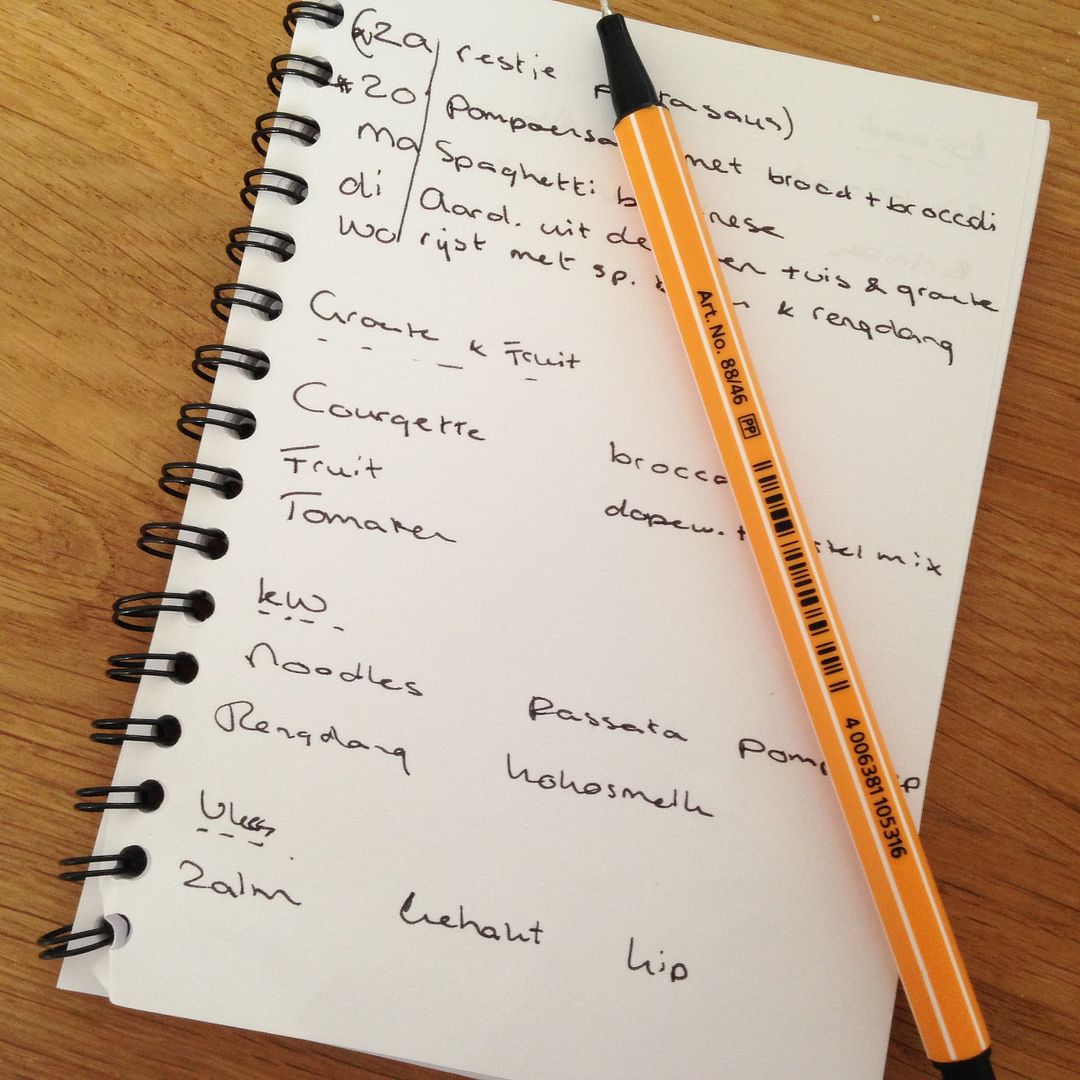 (za restje rasaus)
zo pompoensa met brood + broccoli
ma Spaghetti b nese
di Aard. uit de en + vis & groente
wo rijst met sp. & rengdang
Groente & Fruit
Courgette brocco
Fruit
Tomaten dopew. + kel mix
kw
Noodles Passata pom ip
Rengdang kokosmelk
Vlees
Zalm gehakt kip
Art. No. 88/46 PP
4 006381 105316